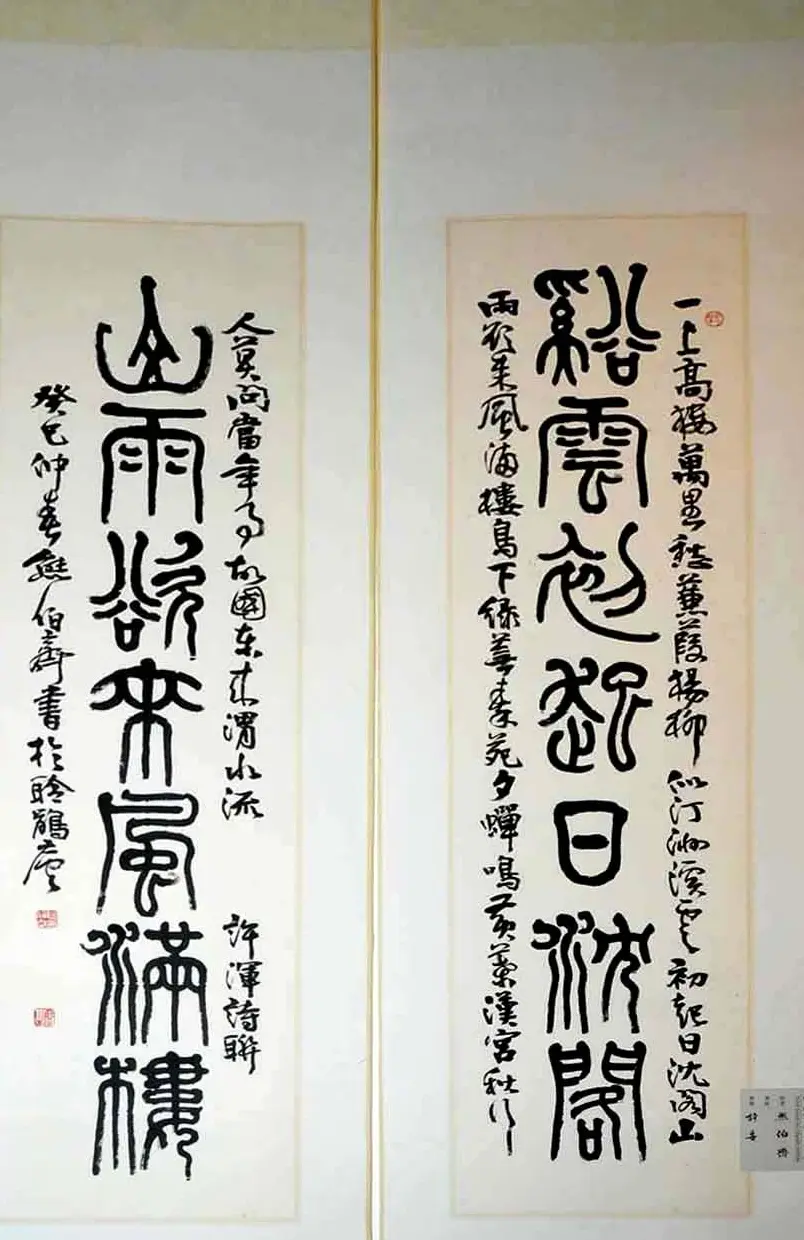 一上高樓萬里愁蒹葭楊柳似汀洲溪雲初起日沈閣山
谿雲初起日沈閣
雨欲來風滿樓鳥下綠蕪秦苑夕蟬鳴黃葉漢宮秋行
人莫問當年事故國東來渭水流
許渾詩聯
山雨欲來風滿樓
癸巳仲春熊伯齊書於聆鵑廬
熊伯齊